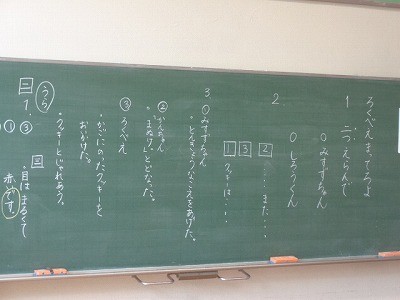 ろくべえまってろよ
1 二つえらんで
○みすずちゃん
○しろうくん
2.
2 ・・・・・また・・・
3
1 クッキーは・・・
3
○みすずちゃん
・とんきょうなこえをあげた。
②かんちゃん
・「まぬけ」とどなった。
③ろくべえ
・かごにのったクッキーと
おいかけた。
・クッキーとじゃれあう。
うら
三
1
①③
三
・目はまるくて
赤いです。